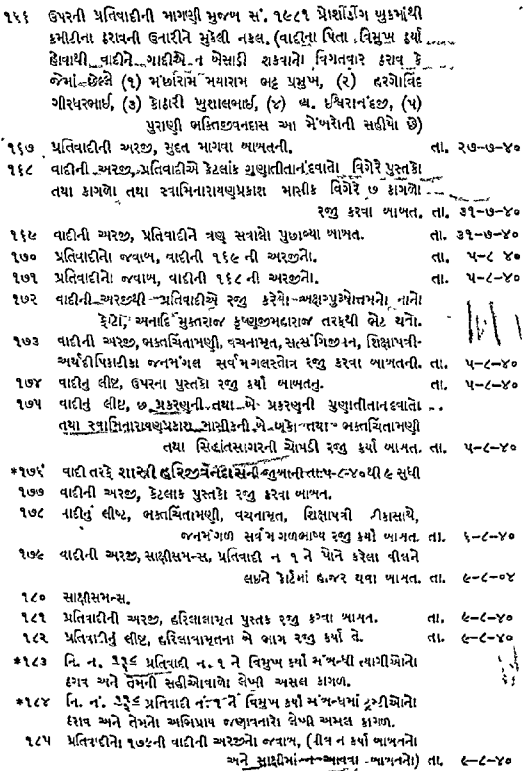 ૧૬૬ ઉપરની પ્રતિવાદીની માગણી મુજબ સં. ૧૯૮૧ પ્રોશીડીંગ બુકમાંથી
કમીટીના ઠરાવની ઉતારીને મુકેલી નકલ. (વાદીના પિતા વિમુખ કર્યા
હોવાથી વાદીને ગાદીએ ન બેસાડી શકવાનો વિગતવાર ઠરાવ કે
જેમાં છેલ્લે (૧) મંછારામ મયારામ ભટ્ટ પ્રમુખ, (૨) હરગોવિંદ
ગીરધરભાઈ, (૩) કોઠારી ખુશાલભાઈ, (૪) બ્ર. ઈશ્વરાનંદજી, (૫)
પુરાણી ભક્તિજીવનદાસ આ મેંબરોની સહીયો છે)
૧૬૭ પ્રતિવાદીની અરજી, મુદત માગવા બાબતની. તા. ૨૭-૭-૪૦
૧૬૮ વાદીની અરજી, પ્રતિવાદીએ કેટલાંક ગુણાતીતાનંદવાતો વિગેરે પુસ્તકો
તથા કાગળો તથા સ્વામિનારાયણપ્રકાશ માસીક વિગેરે ૭ કાગળો
રજી કરવા બાબત. તા. ૩૧-૭-૪૦
૧૬૯ વાદીની અરજી, પ્રતિવાદીને ત્રણ સવાલો પુછાવ્યા બાબત. તા. ૩૧-૭-૪૦
૧૭૦ પ્રતિવાદીનો જવાબ, વાદીની ૧૬૯ ની અરજીનો. તા. ૫-૮ ૪૦
૧૭૧ પ્રતિવાદીનો જવાબ, વાદીની ૧૬૮ ની અરજીનો. તા. ૫-૮-૪૦
૧૭૨ વાદીની અરજીથી પ્રતિવાદીએ રજી કરેલો અક્ષરપુરૂષોત્તમનો નાનો
ફોટો, અનાદિ મુક્તરાજ કૃષ્ણજીમહારાજ તરફથી ભેટ થનો.
૧૭૩ વાદીની અરજી, ભક્તચિંતામણી, વચનામૃત, સત્સંગિજીવન, શિક્ષાપત્રી-
અર્થદીપિકાટીકા જનમંગલ સર્વમંગલસ્તોત્ર રજી કરવા બાબતની. તા. ૫-૮-૪૦
૧૭૪ વાદીનું લીષ્ટ, ઉપરના પુસ્તકો રજી કર્યા બાબતનું. તા. ૫-૮-૪૦
૧૭૫ વાદીનું લીષ્ટ, છ પ્રકરણની તથા બે પ્રકરણની ગુણાતીતાનંદવાતો
તથા સ્વામિનારાયણપ્રકાશ માસીકની બે બુકો તથા ભક્તચિંતામણી
તથા સિદ્ધાંતસાગરની ચોપડી રજી કર્યા બાબત. તા. ૫-૮-૪૦
*૧૭૬ વાદી તરફે શાસ્ત્રી હરિજીવનદાસની જુબાની તા. ૫-૮-૪૦ થી ૯ સુધી
૧૭૭ વાદીની અરજી, કેટલાક પુસ્તકો રજી કરવા બાબત.
૧૭૮ વાદીનું લીષ્ટ, ભક્તચિંતામણી, વચનામૃત, શિક્ષાપત્રી ટીકાસાથે,
જનમંગળ સર્વમંગળભાષ્ય રજી કર્યા બાબત. તા. ૬-૮-૪૦
૧૭૯ વાદીની અરજી, સાક્ષીસમન્સ, પ્રતિવાદી નં ૧ ને પોતે કરેલા વીલને
લઈને કોર્ટમાં હાજર થવા બાબત. તા. ૯-૮-૦૪
૧૮૦ સાક્ષીસમન્સ.
૧૮૧ પ્રતિવાદીની અરજી, હરિલીલામૃત પુસ્તક રજી કરવા બાબત. તા. ૯-૮-૪૦
૧૮૨ પ્રતિવાદીનું લીષ્ટ, હરિલીલામૃતના બે ભાગ રજી કર્યા તે. તા. ૯-૮-૪૦
*૧૮૩ નિ. નં. પ્રતિવાદી નં. ૧ ને વિમુખ કર્યા સંબન્ધી ત્યાગીઓનો
ઠરાવ અને તેમની સહીઓવાળો લેખી અસલ કાગળ.
*૧૮૪ નિ. નં. પ્રતિવાદી નં. ૧ ને વિમુખ કર્યા સંબન્ધમાં ટ્રસ્ટીઓનો
ઠરાવ અને તેમનો અભિપ્રાય જણાવનારો લેખી અસલ કાગળ.
૧૮૫ પ્રતિવાદીનો ૧૭૯ની વાદીની અરજીનો જવાબ, (વીલ ન કર્યા બાબતનો
અને સાક્ષીમાં ન આવવા બાબતનો) તા. ૯-૮-૪૦